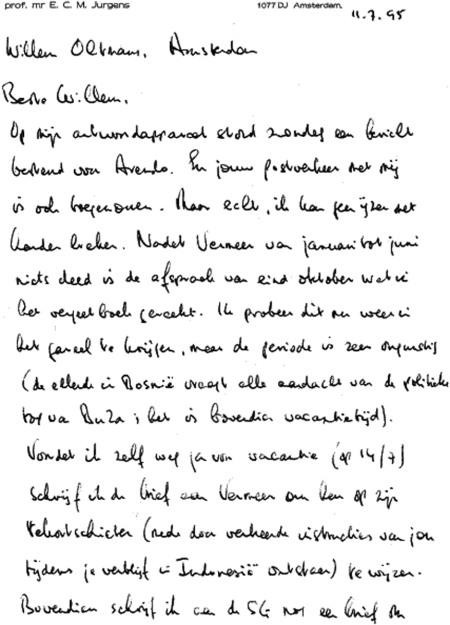 prof. mr E. C. M. Jurgens 1077 DJ Amsterdam.
11.7.95
Willem Oltmans, Amsterdam
Beste Willem,
Op mijn antwoordapparaat stond zondag een bericht
bestemd voor Arendo. En jouw postverkeer met mij
is ook toegenomen. Maar echt, ik kan geen ijzer met
handen breken. Nadat Vermeer van januari tot juni
niets deed is de afspraak van eind oktober wat in
het vergeetboek geraakt. Ik probeer dit nu weer in
het gareel te krijgen, maar de periode is zeer ongunstig
(de ellende in Bosnië vraagt alle aandacht van de politieke
top van BuZa; het is bovendien vacantietijd).
Voordat ik zelf weg ga voor vacantie (op 14/7)
schrijf ik de brief aan Vermeer om hem op zijn
tekortschieten (mede door verkeerde instructies van jou
tijdens je verblijf in Indonesië ontstaan) te wijzen.
Bovendien schrijf ik aan de SG nog een brief om